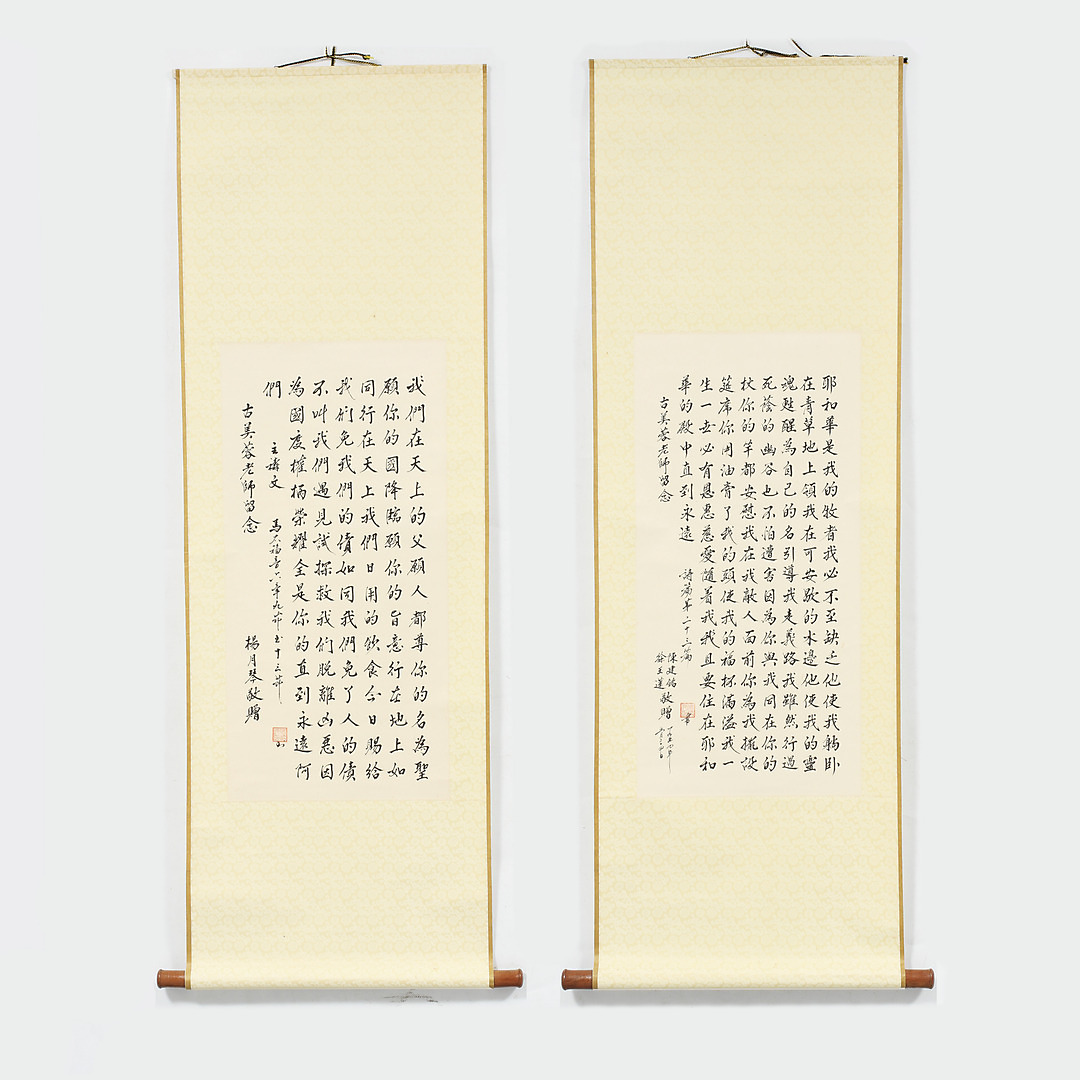 我們在天上的父願人都尊你的名為聖
願你的國降臨願你的旨意行在地上如
同行在天上我們日用的飲食今日賜給
我們免我們的債如同我們免了人的債
不叫我們遇見試探救我們脫離凶惡因
為國度權柄榮耀全是你的直到永遠阿
們
主禱文 馬太福音六章九節至十三節
古美蓉老師留念 楊月琴敬贈
耶和華是我的牧者我必不至缺乏他使我躺臥
在青草地上領我在可安歇的水邊他使我的靈
魂甦醒為自己的名引導我走義路我雖然行過
死蔭的幽谷也不怕遭害因為你與我同在你的
杖你的竿都安慰我在我敵人面前你為我擺設
筵席你用油膏了我的頭使我的福杯滿溢我一
生一世必有恩惠慈愛隨着我我且要住在耶和
華的殿中直到永遠 詩篇第二十三篇
古美蓉老師留念
陳建銘
徐玉蓮
敬贈